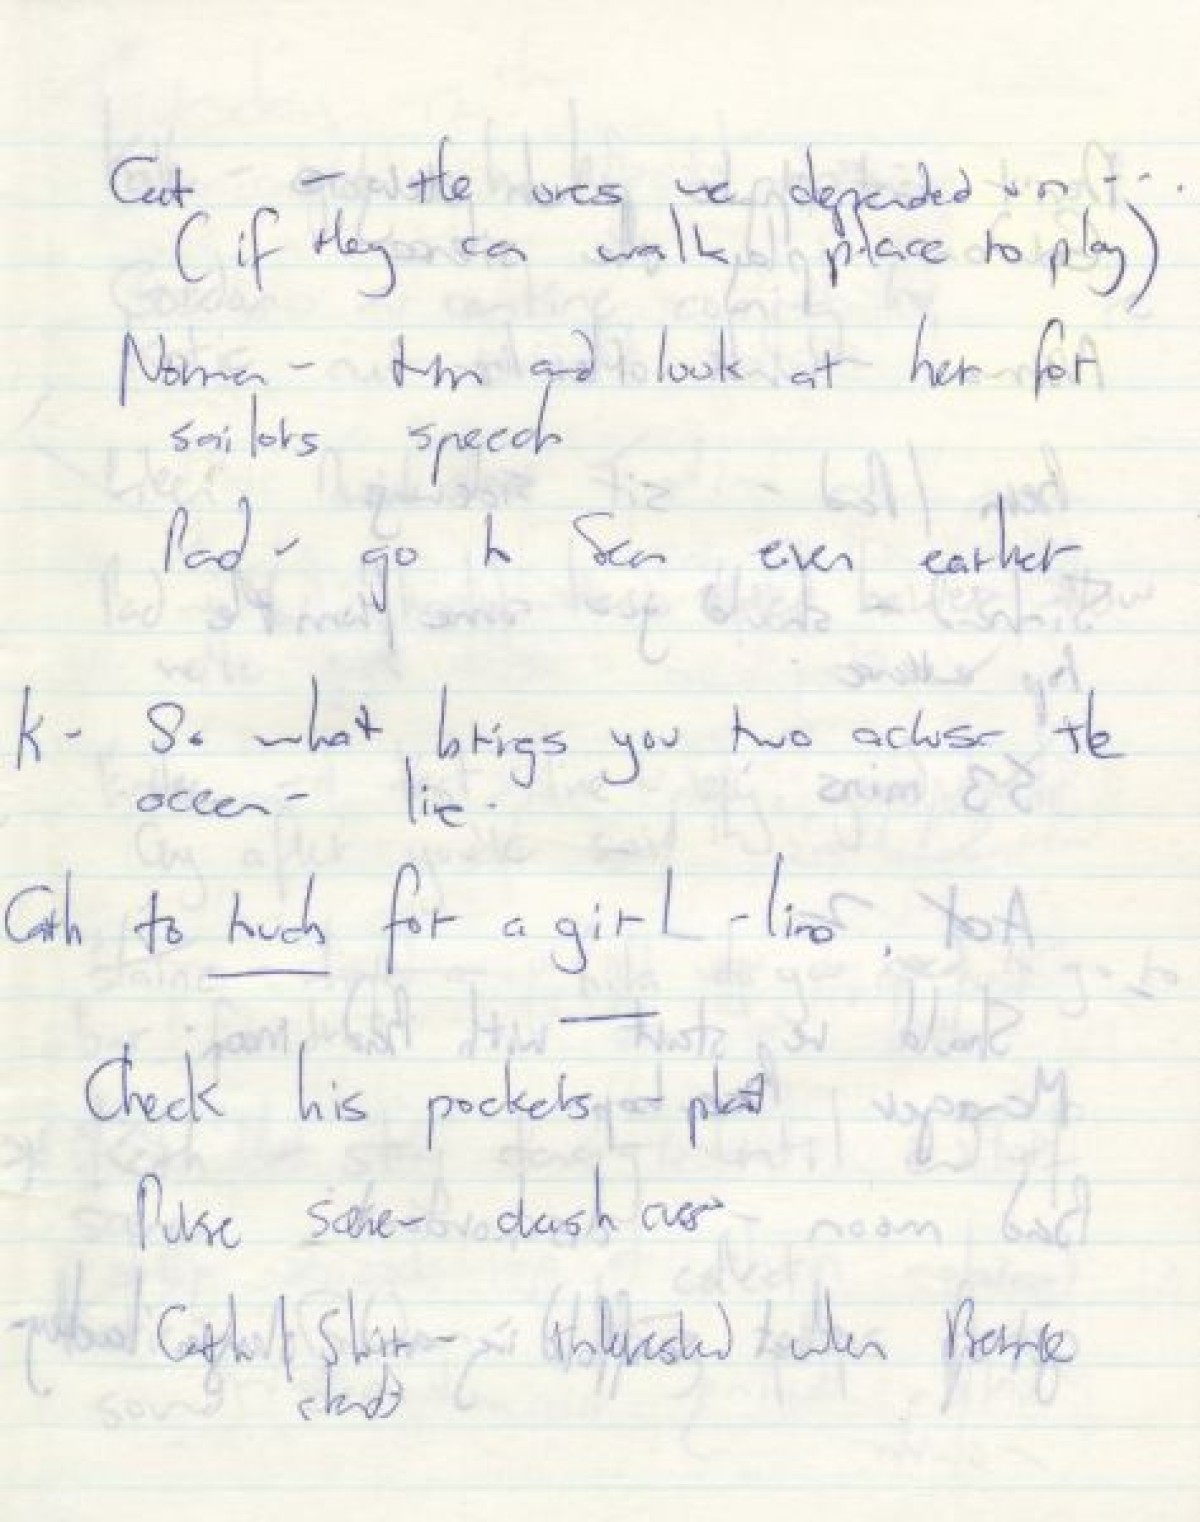 Cat - the ones we depended on - - .
(if they can walk place to play)
Norma - turn and look at her for
sailors speech
Pad - go to Sea even earlier
K - So what brings you two across the
ocean - line .
Cath to much for a girl - line .
Check his pockets -
Purse scene - dash over
Cath / Shirt - interested when Bernie